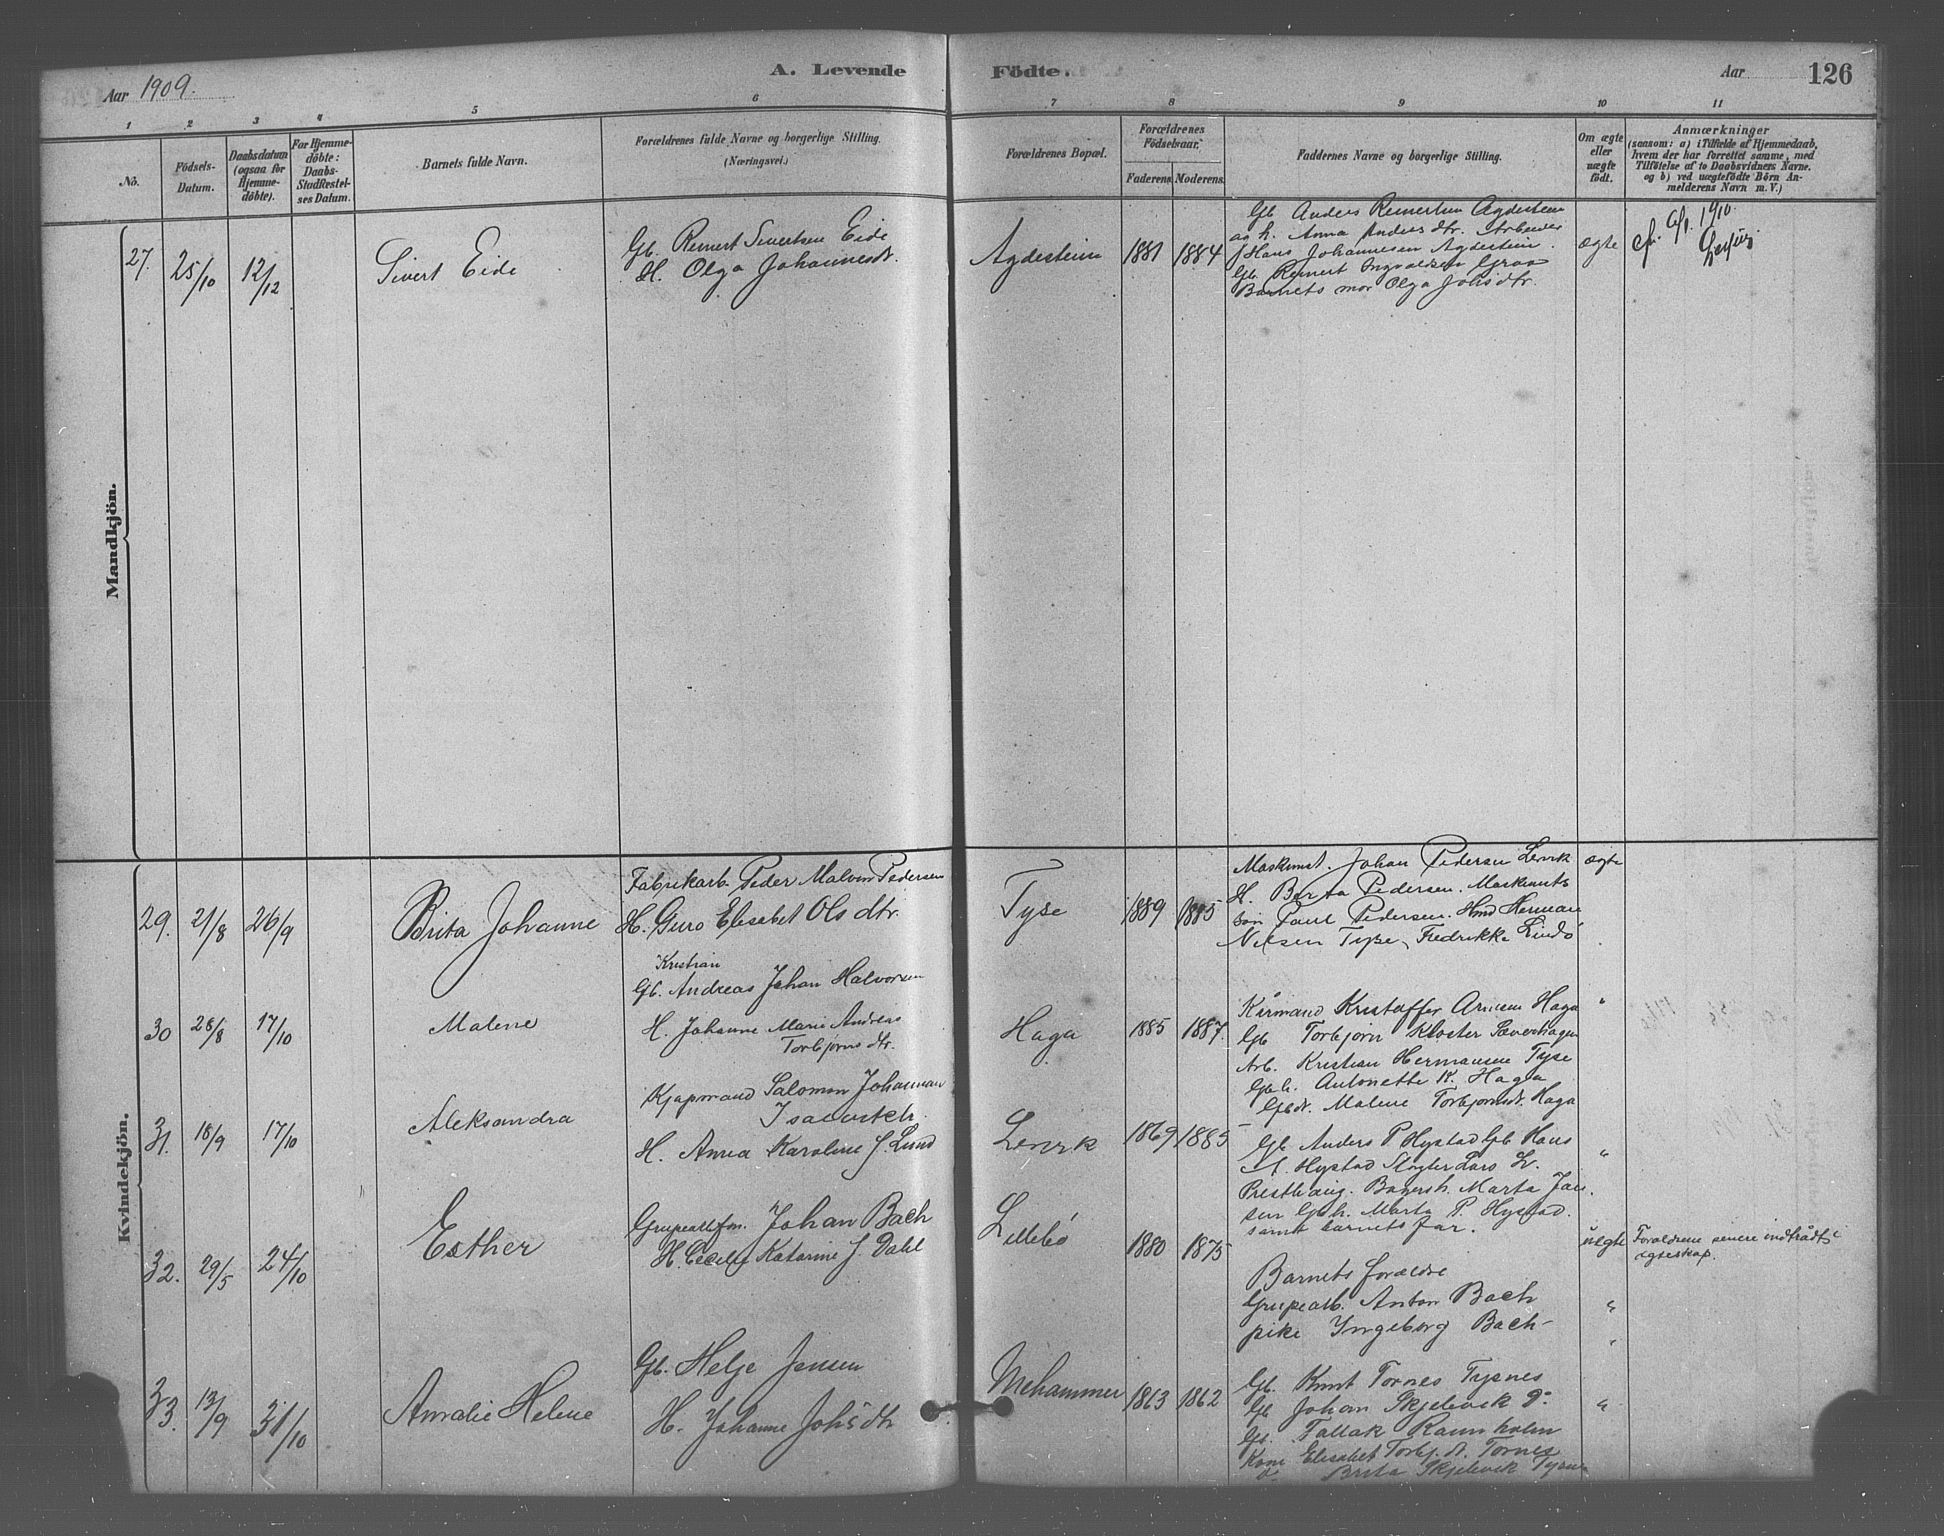 Aar 1909.
A. Levende
Födte.
Aar
126
1
2
3
4
5
6
7
8
9
10
11
No.
Födsels-
Datum.
Daabsdatum
(ogsaa for
Hjemme-
döbte).
For Hjemme-
döbte:
Daabs-
Stadfæstel-
ses Datum.
Barnets fulde Navn.
Forældrenes fulde Navne og borgerlige Stilling.
(Næringsvei.)
Forældrenes Bopæl.
Forældrenes
Födselsaar.
Faderens
Moderens
Faddernes Navne og borgerlige Stilling.
Om ægte
eller
uægte
födt.
Anmærkninger
(saasom: a) i Tilfælde af Hjemmedaab,
hvem der har forrettet samme, med
Tilföielse af to Daabsvidners Navne.
og b) ved uægtefödte Börn An-
melderens Navn m. V.)
Mandkjön.
27.
25/10
12/12
Sivert Eide
Gb. Reinert Sivertsen Eide
H. Olga Johannesdt.
Agdestein
1881
1884
Gb Anders Reinertsen Agdestein
og h. Anna Andersdtr. Arbeider
Hans Johannesen Agdestein.
Gb. Reinert Ingvaldsen
Barnets mor Olga Johsdtr.
ægte
1910.
Kvindekjön.
29.
21/8
26/9
Brita Johanne
Fabrikarb. Peder Malvin Pedersen
H. Guro Elisabet Ols dtr.
Tyse
1889
1885
Maskinist. Johan Pedersen Lervik
H. Berta Pedersen. Maskinists
søn Paul Pedersen. Hmd Herman
Nilsen Tyse, Fredrikke Lindø
ægte
30
28/8
17/10
Malene
Kristian
Gb. Andreas Johan Halvorsen
H. Johanne Marie Andrea
Torbjørns dtr.
Haga
1885
1887.
Kårmand Kristoffer Arnesen Haga
Gb Torbjørn Kloster Sæverhagen
Arb. Kristian Hermansen Tyse
Gbh. Antonette K. Haga
Gbdt. Malene Torbjørnsdt. Haga
"
31.
18/9
17/10
Aleksandra
Kjøpmand Salomon Johannan
Isacowitch.
H. Anna Karoline J. Lund
Lervik
1869
1885
Gb. Anders P. Hystad Gb. Hans
A. Hystad Slagter Lars Lr.
Presthaug. Bagersh. Marta Jan
sen Gbh. Marta P. Hystad.
samt barnets far.
"
32.
29/5
24/10
Esther
Grupearbfm. Johan Bach
H. Cecilie Katarine J. Dahl
Lillebö
1880
1875
Barnets forældre
Grupearb. Anton Bach
pike Ingeborg Bach
uegte
Forældrene senere indtrådt i
egteskap.
"
33.
13/9
31/10
Amalie Helene
Gb. Helje Jensen
H. Johanne Johs dtr
Mehammer
1863
1862
Gb. Knut Tornes Tysnes
Gb Johan Skjelevik do.
Gb. Tallak Ravnholm
Kone Elisabet Torbj. dt. Tornes
Brita Skjelevik Tysnes
"